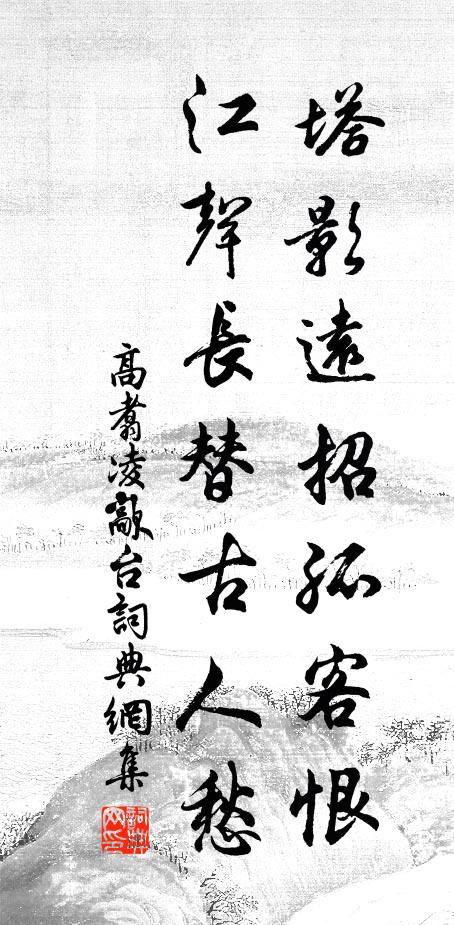 塔影遠招孤客恨
江聲長替古人愁
高翥凌歊台詞典網集